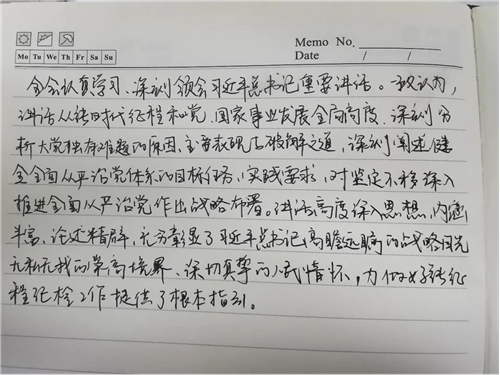 Memo No.
Mo Tu We Th Fr Sa Su
Date / /
全会认真学习、深刻领会习近平总书记重要讲话。一致认为，
讲话从新时代征程和党、国家事业发展全局高度、深刻分
析大党独有难题的原因、主要表现及破解之道，深刻阐述健
全全面从严治党体系的目标任务、实践要求，对坚定不移深入
推进全面从严治党作出战略部署。讲话高度深入思想，内涵
丰富、论述精辟，充分彰显了习近平总书记高瞻远瞩的战略目光
无私无我的崇高境界、深切真挚的人民情怀，为做好新征
程纪检工作提供了根本指引。